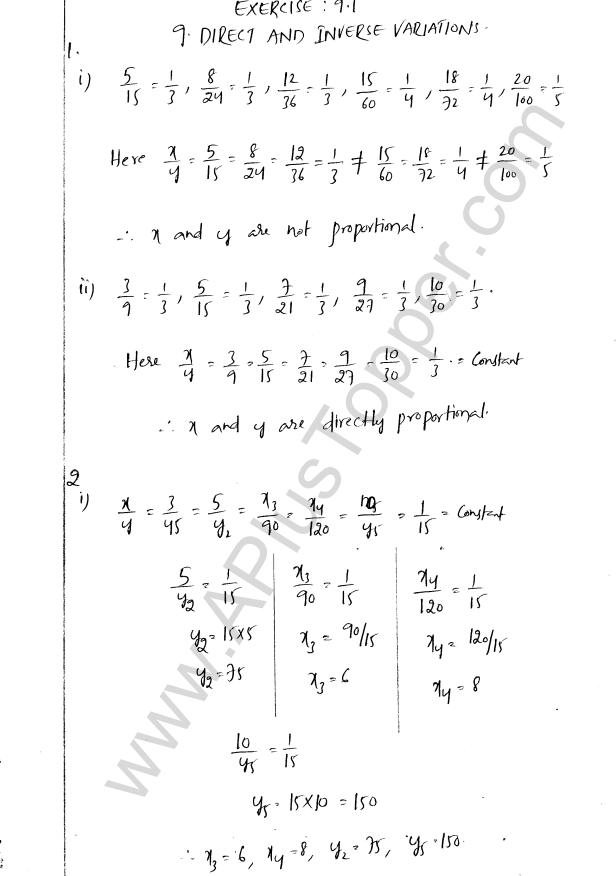 EXERCISE : 9.1
9. DIRECT AND INVERSE VARIATIONS.
1.
i) 5/15 = 1/3 , 8/24 = 1/3 , 12/36 = 1/3 , 15/60 = 1/4 , 18/72 = 1/4 , 20/100 = 1/5
Here x/y = 5/15 = 8/24 = 12/36 = 1/3 ≠ 15/60 = 18/72 = 1/4 ≠ 20/100 = 1/5
∴ x and y are not proportional.
ii) 3/9 = 1/3 , 5/15 = 1/3 , 7/21 = 1/3 , 9/27 = 1/3 , 10/30 = 1/3 .
Here x/y = 3/9 = 5/15 = 7/21 = 9/27 = 10/30 = 1/3 . = Constant
∴ x and y are directly proportional.
2
i) x/y = 3/45 = 5/y₂ = x₃/90 = x₄/120 = 10/y₅ = 1/15 = Constant
5/y₂ = 1/15
y₂ = 15×5
y₂ = 75
x₃/90 = 1/15
x₃ = 90/15
x₃ = 6
x₄/120 = 1/15
x₄ = 120/15
x₄ = 8
10/y₅ = 1/15
y₅ = 15×10 = 150
∴ x₃ = 6, x₄ = 8, y₂ = 75, y₅ = 150
www.APlusTopper.com